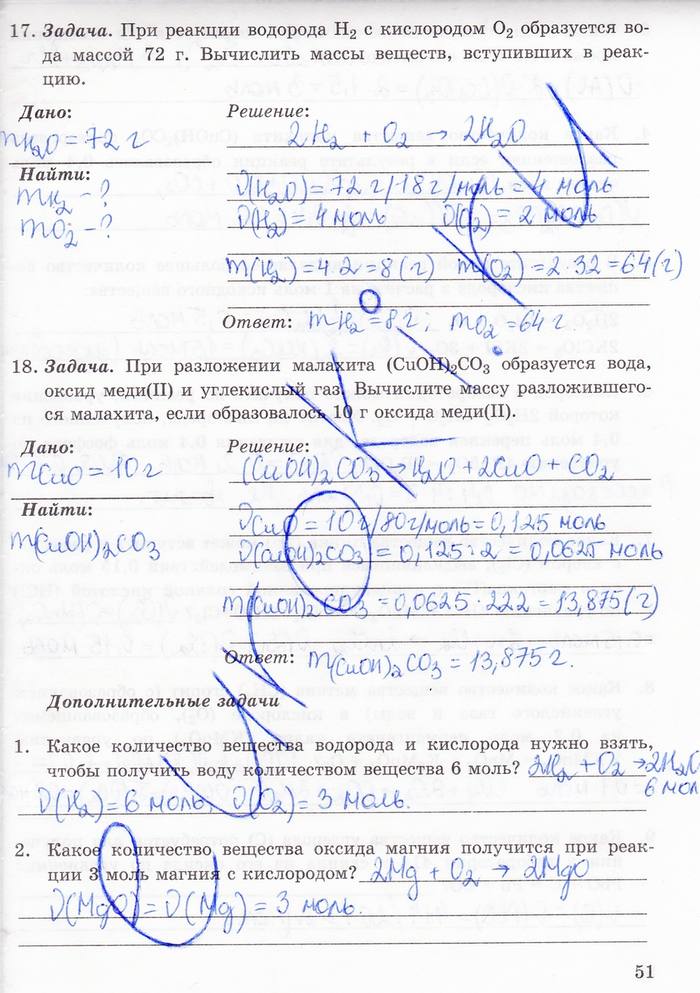 17. Задача. При реакции водорода H₂ с кислородом O₂ образуется во-
да массой 72 г. Вычислить массы веществ, вступивших в реак-
цию.
Дано:
Решение:
mH₂O = 72 г
2H₂ + O₂ → 2H₂O
Найти:
mH₂ - ?
mO₂ - ?
ν(H₂O) = 72 г/18 г/моль = 4 моль
ν(H₂) = 4 моль ν(O₂) = 2 моль
m(H₂) = 4·2 = 8 (г) m(O₂) = 2·32 = 64 (г)
Ответ: mH₂ = 8 г; mO₂ = 64 г
18. Задача. При разложении малахита (CuOH)₂CO₃ образуется вода,
оксид меди(II) и углекислый газ. Вычислите массу разложившего-
ся малахита, если образовалось 10 г оксида меди(II).
Дано:
Решение:
mCuO = 10 г
(CuOH)₂CO₃ → H₂O + 2CuO + CO₂
Найти:
m(CuOH)₂CO₃
νCuO = 10 г/80 г/моль = 0,125 моль
ν(CuOH)₂CO₃ = 0,125 : 2 = 0,0625 моль
m(CuOH)₂CO₃ = 0,0625 · 222 = 13,875 (г)
Ответ: m(CuOH)₂CO₃ = 13,875 г.
Дополнительные задачи
1. Какое количество вещества водорода и кислорода нужно взять,
чтобы получить воду количеством вещества 6 моль? 2H₂ + O₂ → 2H₂O
6 моль
ν(H₂) = 6 моль, ν(O₂) = 3 моль.
2. Какое количество вещества оксида магния получится при реак-
ции 3 моль магния с кислородом? 2Mg + O₂ → 2MgO
ν(MgO) = ν(Mg) = 3 моль.
51